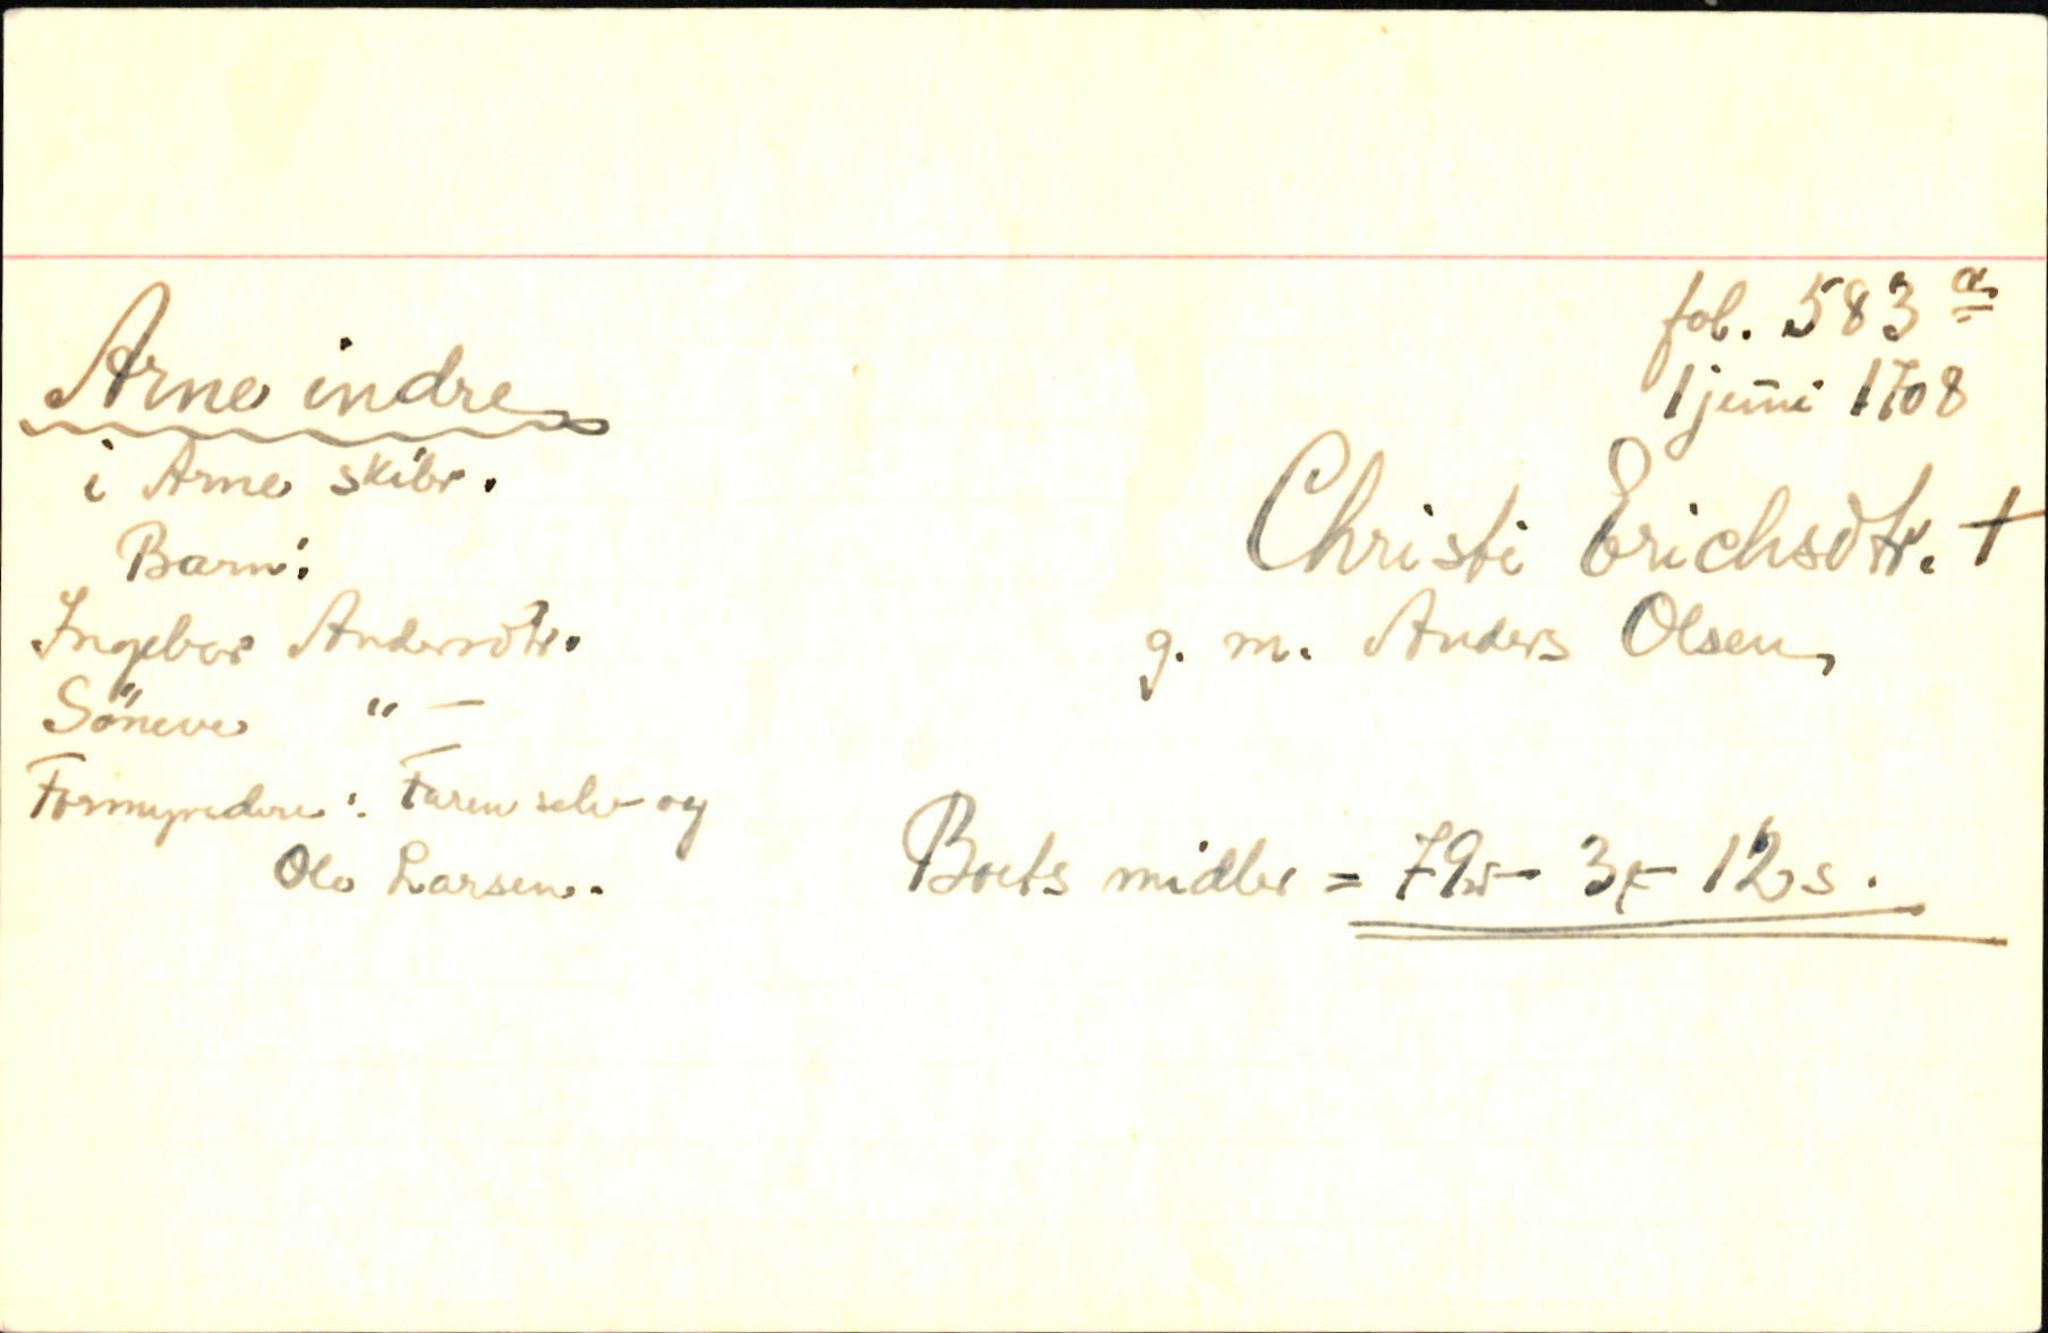 fol. 583 a
1 juni 1708
Arne indre
i Arne skibr.
Christi Erichsdtr. †
g. m. Anders Olsen,
Barn:
Ingebor Andersdtr.
Söneve " —
Formyndere: Faren selv og
Ole Larsen.
Boets midler = 79 - 3 - 12 s.